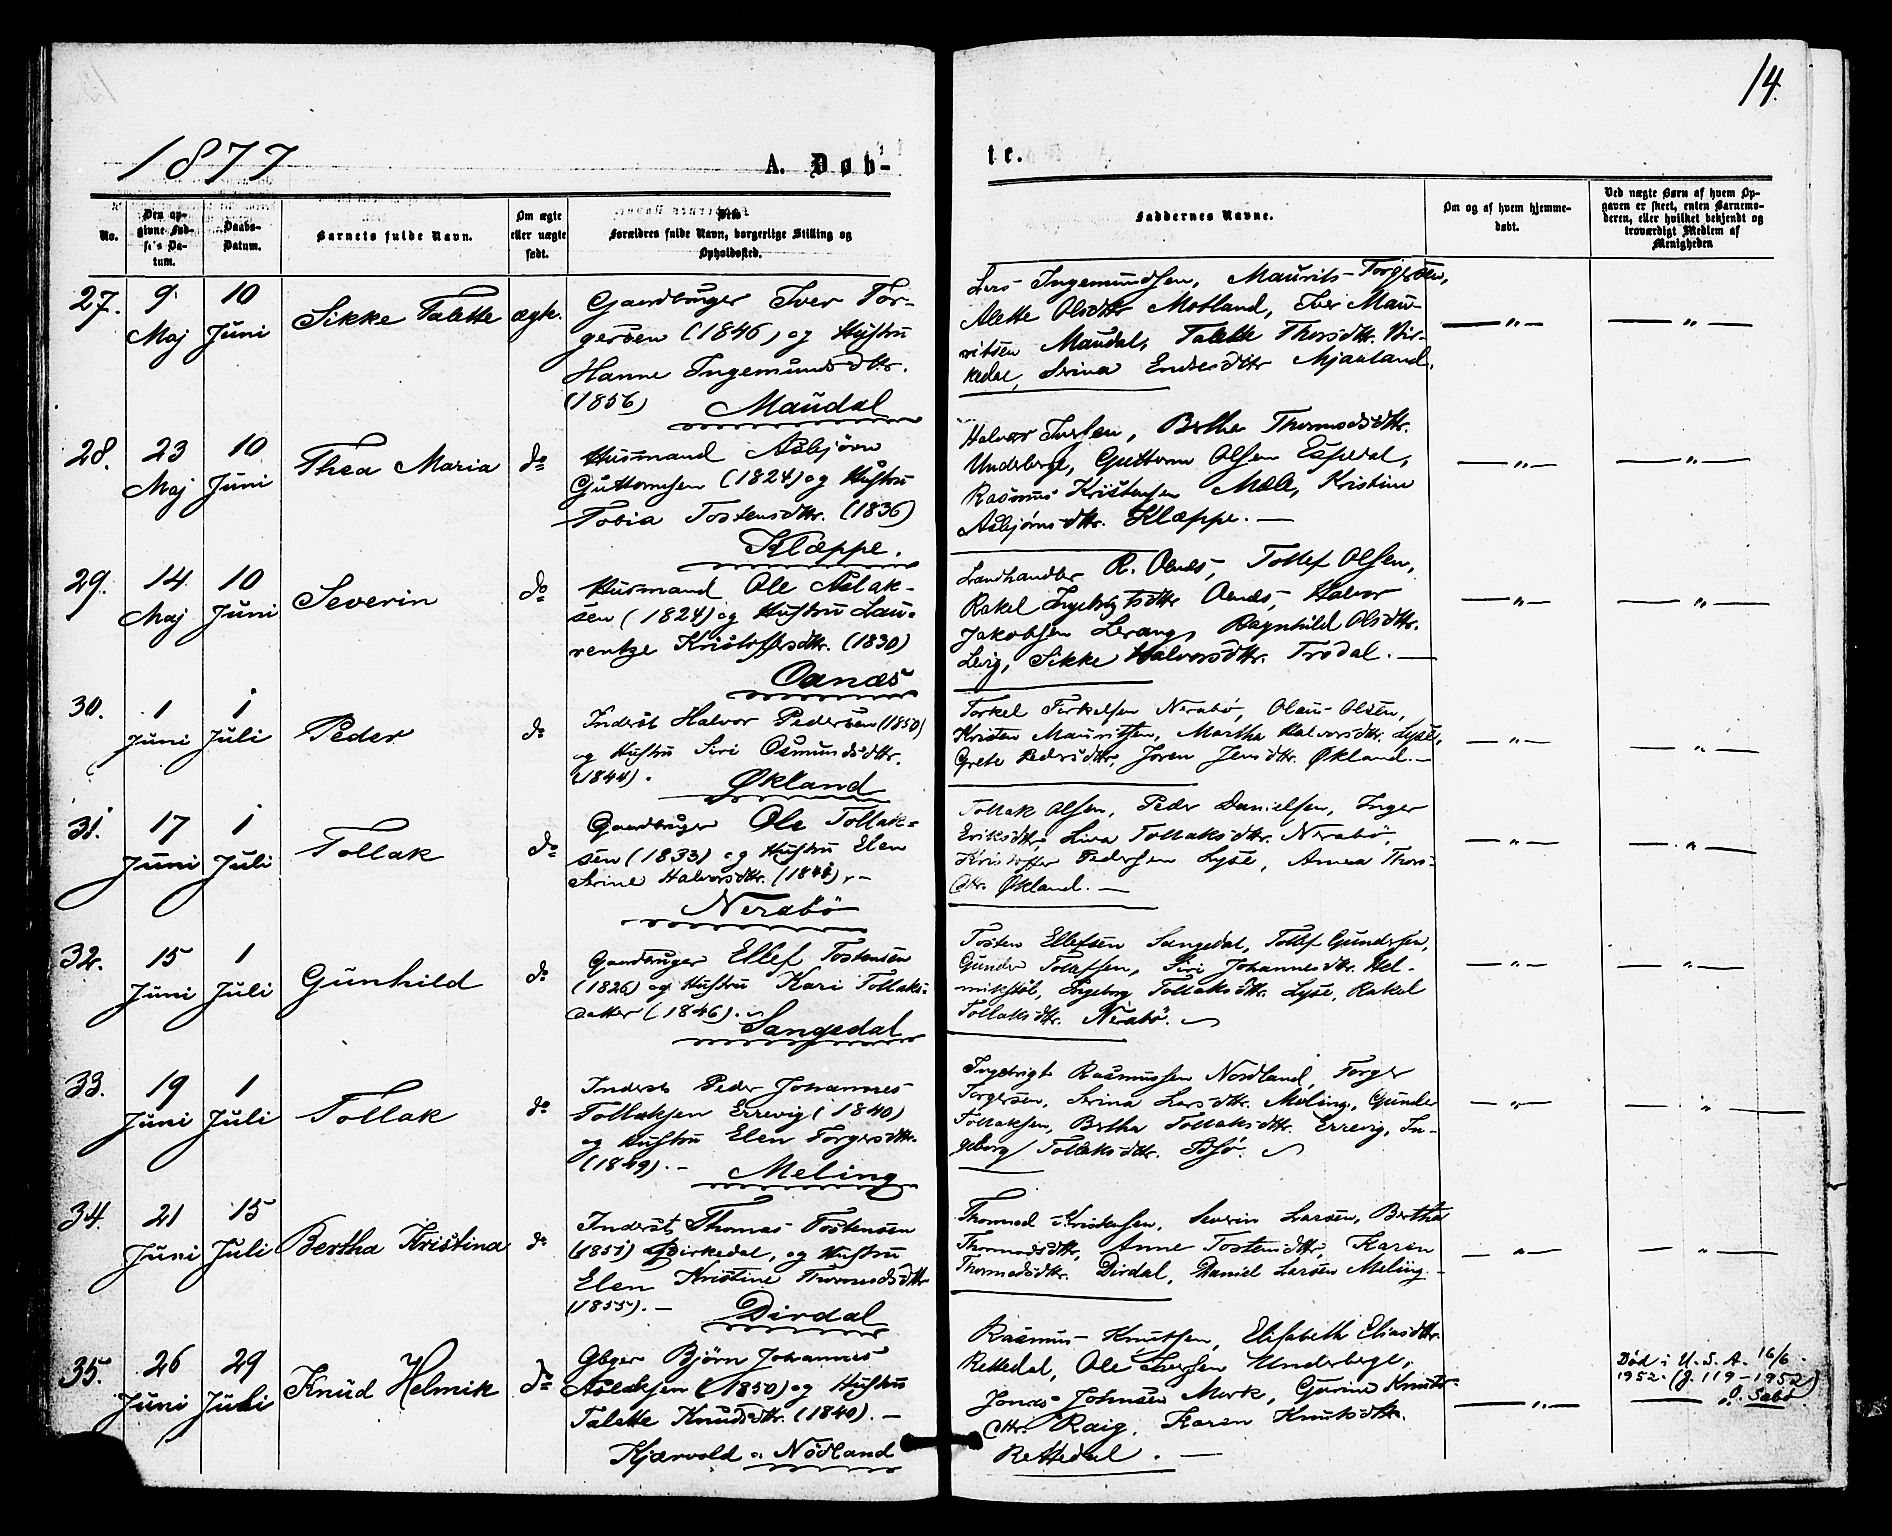 14.
1877
A. Døb-
te.
No.
Den op-
givne Fød-
sels Da-
tum.
Daabs-
Datum.
Barnets fulde Navn.
Om ægte
eller uægte
født.
Forældres fulde Navn, borgerlige Stilling og
Opholdssted.
Faddernes Navne.
Om og af hvem hjemme-
døbt.
Ved uægte Børn af hvem Op-
gaven er skeet, enten Barnemo-
deren, eller hvilket bekjendt og
troværdigt Medlem af
Menigheden
27.
9
Maj
10
Juni
Sikke Talette
ægte.
Gaardbruger Iver Tor-
gersen (1846) og Hustru
Hanne Ingemundsdtr.
(1856) Maudal
Lars Ingemundsen, Maurits Torgersen,
Alette Olsdtr Motland, Iver Mau-
ritsen Maudal, Talette Thorsdtr. Bir-
kedal, Serina Endresdtr Mjaaland.
— " —
— " —
28.
23
Maj
10
Juni
Thea Maria
do
Husmand Asbjørn
Guttormsen (1824) og Hustru
Tobia Tostensdtr. (1836)
Klæppe.
Halvor Iversen, Bertha Thormodsdtr.
Underberge, Guttorm Olsen Espedal,
Rasmus Kristensen Mæle, Kristine
Asbjørnsdtr. Klæppe. —
— " —
— " —
29.
14
Maj
10
Juni
Severin
do
Husmand Ole Aslak-
sen (1824) og Hustru Lau-
rentze Kristoffersdtr. (1830)
Oanæs
Landhandler R. Oanæs, Tollef Olsen,
Rakel Ingebrigtsdtr Oanæs, Halvor
Jakobsen Lerang, Ragnhild Olsdtr.
Levig, Sikke Halvorsdtr. Trodal. —
— " —
— " —
30.
1
Juni
1
Juli
Peder
do
Inderst Halvor Pedersen (1850)
og Hustru Siri Osmundsdtr.
(1844). Økland
Torkel Torkelsen Nerabø, Olaus Olsen,
Kristen Mauritsen, Martha Halvorsdtr. Lyse,
Grete Pedersdtr, Joren Jensdtr. Økland. —
— " —
— " —
31.
17
Juni
1
Juli
Tollak
do
Gaardbruger Ole Tollak-
sen (1833) og Hustru Elen
Serine Halvorsdtr. (1844). —
Nerabö
Tollak Olsen, Peder Danielsen, Inger
Eriksdtr, Lisa Tollaksdtr. Nerabö,
Kristoffer Pedersen Lyse, Anna Thors-
dtr. Økland. —
— " —
— " —
32.
15
Juni
1
Juli
Gunhild
do
Gaardbruger Ellef Tostensen
(1826) og Hustru Kari Tollaks-
datter (1846).
Sangesdal
Tosten Ellefsen Sangesdal, Tollef Gundersen,
Gunder Tollefsen, Siri Johannesdtr. Hel-
mikstøl, Ingeborg Tollaksdtr. Lyse, Rakel
Tollaksdtr. Nerabö.
— " —
— " —
33.
19
Juni
1
Juli
Tollak
do
Inderst Peder Johannes
Tollaksen Errevig (1840)
og Hustru Elen Torgersdtr.
(1849). — Meling
Ingebrigt Rasmussen Nordland, Torger
Torgersen, Serina Larsdtr. Meling, Gunder
Tollaksen, Bertha Tollaksdtr. Errevig, In-
geborg Tollaksdtr.
— " —
— " —
34.
21
Juni
15
Juli
Bertha Kristina
do
Inderst Thomas Tostensen
(1851) Birkedal, og Hustru
Elen Kristine Thormodsdtr
(1855). — Dirdal
Thormod Kristensen, Severin Larsen, Bertha
Thormodsdtr, Anne Tostensdtr, Karen
Thormodsdtr. Dirdal, Daniel Larsen Meling. —
— " —
— " —
35.
26
Juni
29
Juli
Knud Helmik
do
Gbger Bjørn Johannes
Aslaksen (1850) og Hustru
Talette Knudsdtr. (1840). —
Kjærvold " Nödland
Rasmus Knutsen, Elisabeth Eliasdtr.
Rettedal, Ole Iversen Underberge,
Jonas Johnsen Mork, Gurine Knuts-
dtr. Raig, Karen Knutsdtr.
Rettedal. —
— " —
Død i U. S. A. 16/6
1952. (J. 119-1952)